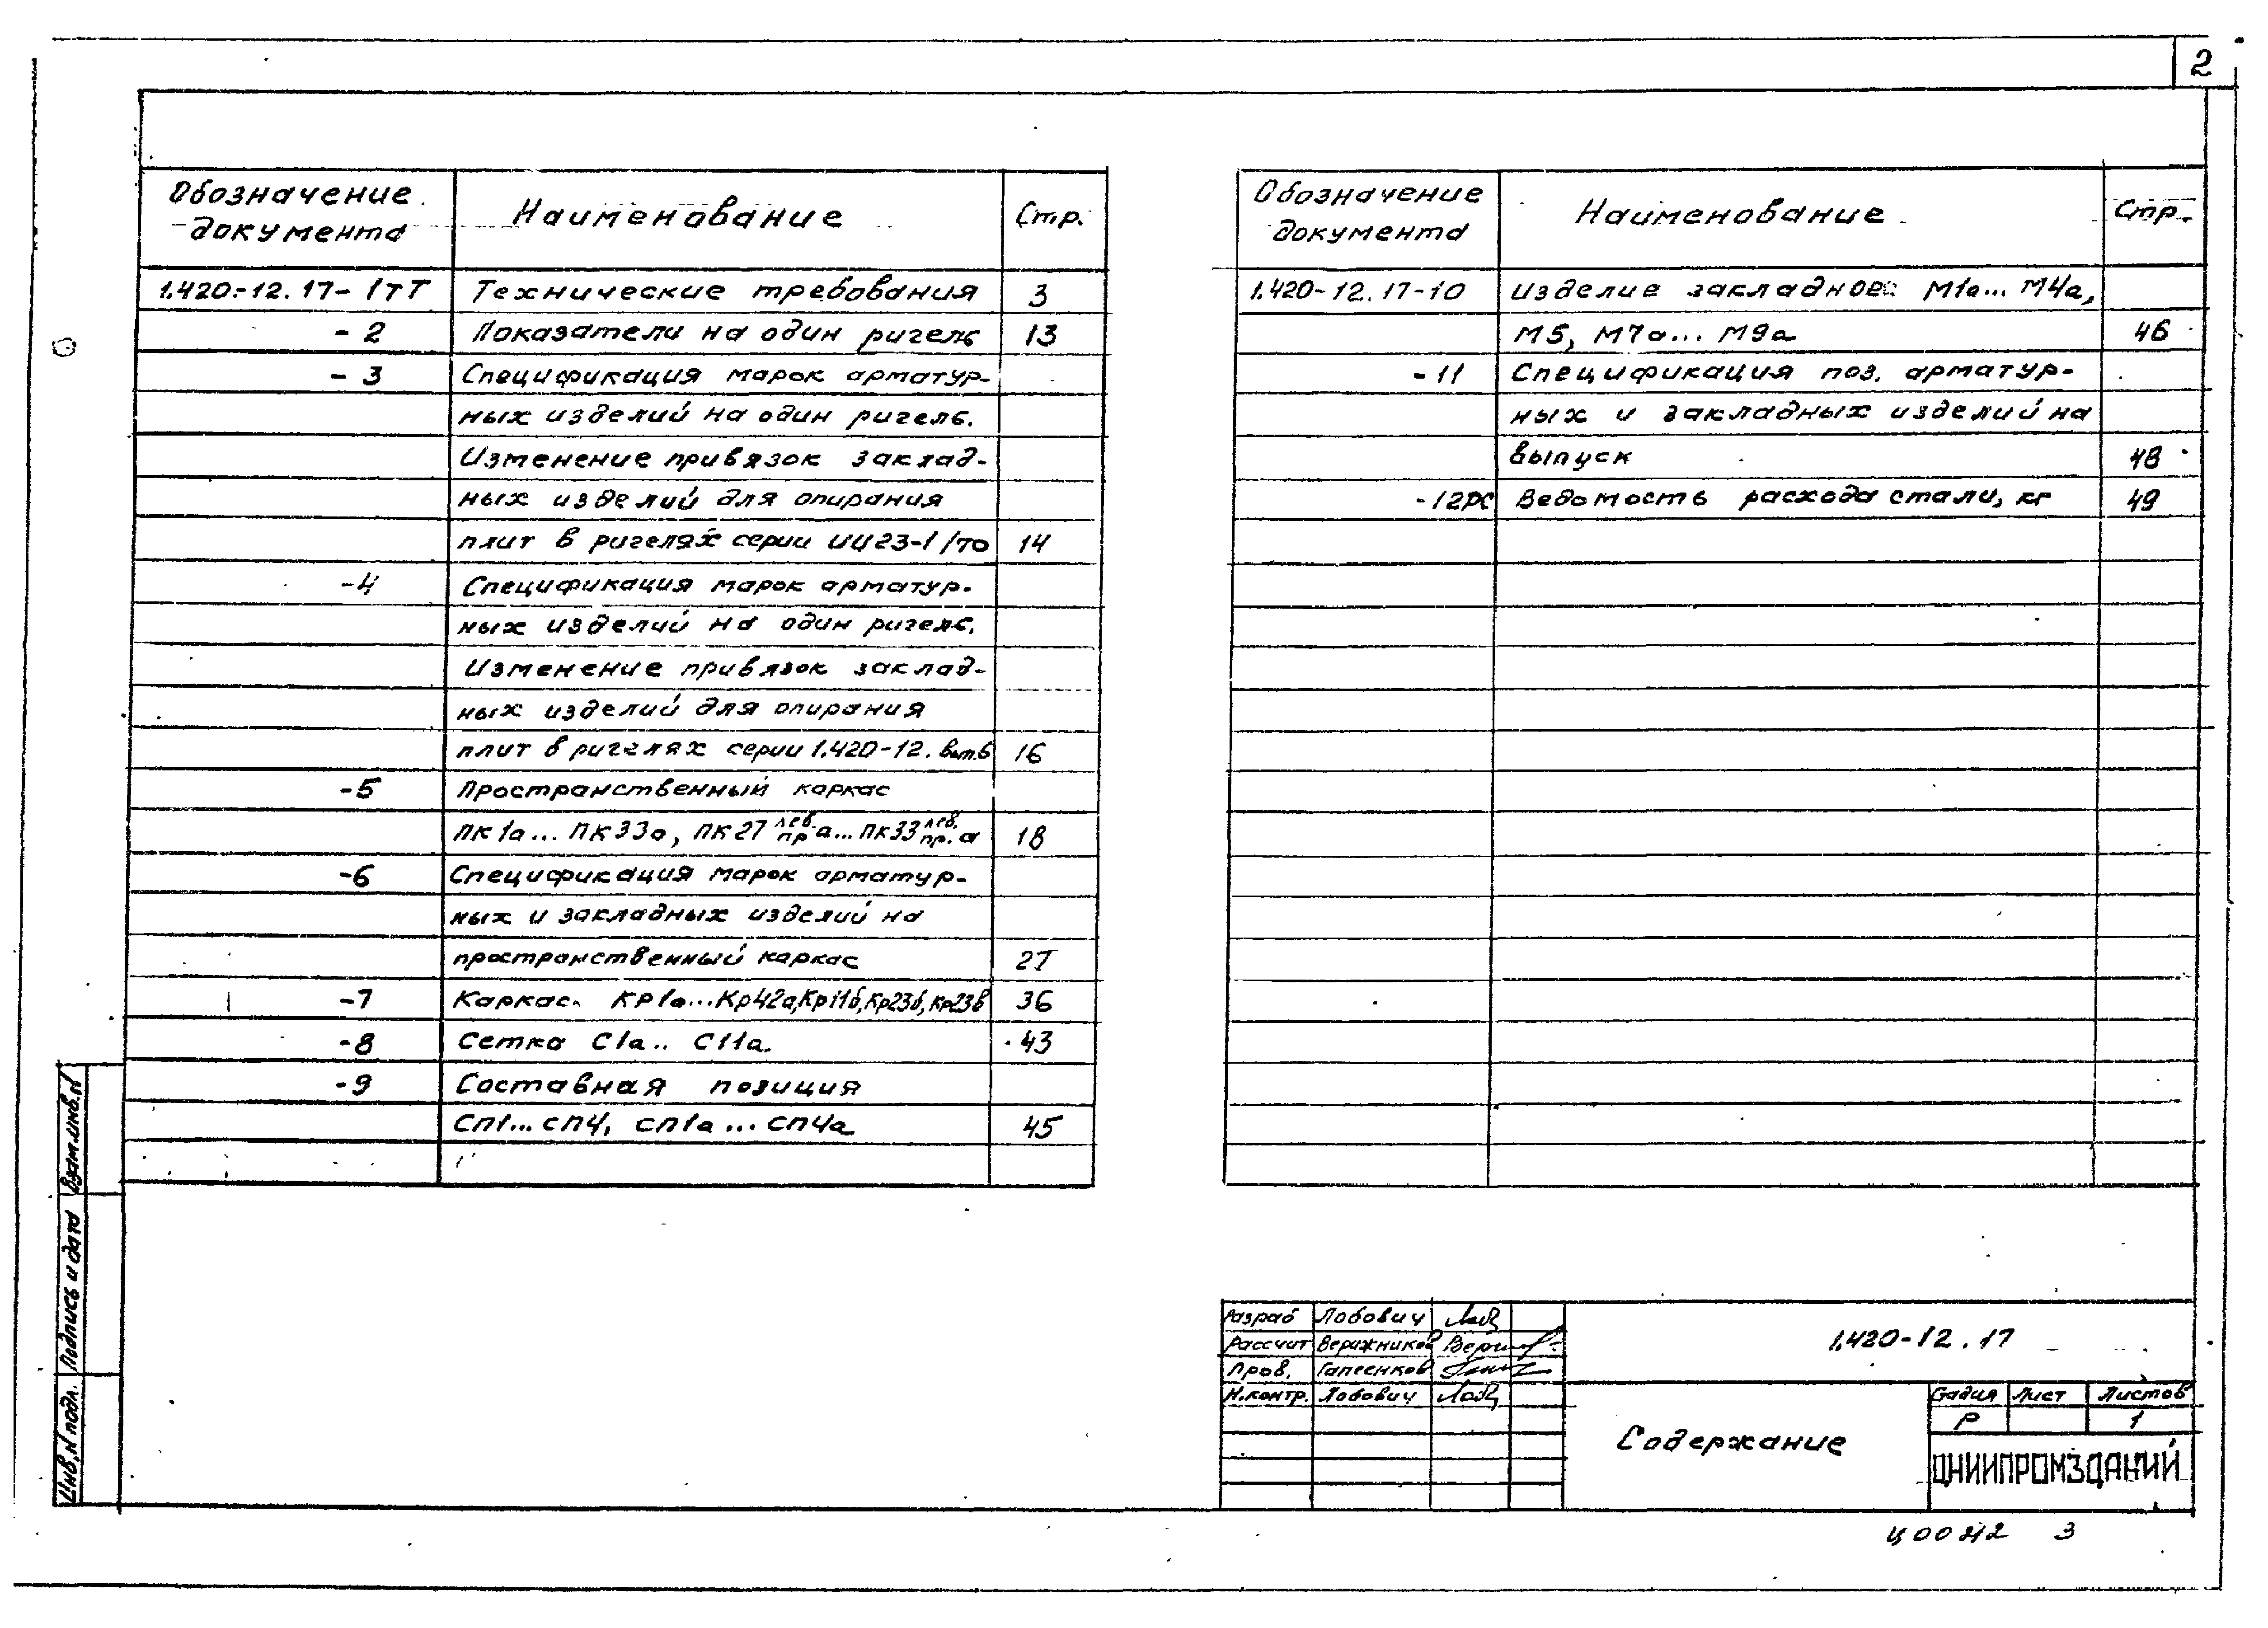 2
Обозначение документа Наименование Стр.
1.420-12.17-1ТТ Технические требования 3
-2 Показатели на один ригель 13
-3 Спецификация марок арматур-
ных изделий на один ригель.
Изменение привязок заклад-
ных изделий для опирания
плит в ригелях серии ИИ23-1/70 14
-4 Спецификация марок арматур-
ных изделий на один ригель.
Изменение привязок заклад-
ных изделий для опирания
плит в ригелях серии 1.420-12. вып.6 16
-5 Пространственный каркас
ПК1а... ПК33а, ПК27 лев. пр. а... ПК33 лев. пр. а 18
-6 Спецификация марок арматур-
ных и закладных изделий на
пространственный каркас 27
-7 Каркас Кр1а...Кр42а, Кр11б, Кр23б, Кр23в 36
-8 Сетка С1а.. С11а. 43
-9 Составная позиция
СП1...СП4, СП1а...СП4а 45
Обозначение документа Наименование Стр.
1.420-12.17-10 Изделие закладное М1а... М4а,
М5, М7а... М9а 46
-11 Спецификация поз. арматур-
ных и закладных изделий на
выпуск 48
-12РС Ведомость расхода стали, кг 49
Взам.инв.N
Подпись и дата
Инв.N подл.
Разраб Лобович
Рассчит Верижников
Пров. Гапеенков
Н.контр. Лобович
1.420-12.17
Содержание
Стадия Лист Листов
Р 1
ЦНИИПРОМЗДАНИЙ
3